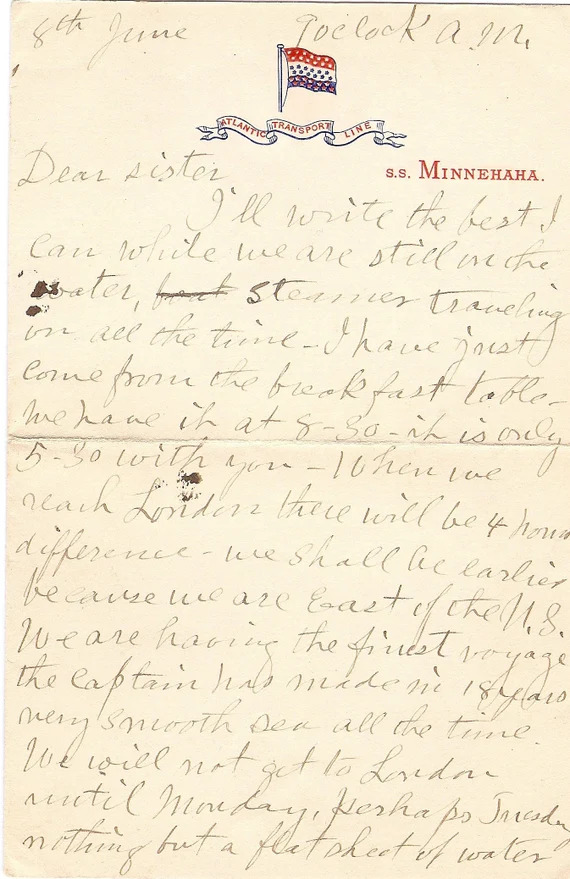 8th June 9oclock A.M.
ATLANTIC TRANSPORT LINE
Dear sister
S.S. MINNEHAHA.
I'll write the best I
can while we are still on the
water, boat steamer traveling
on all the time - I have just
come from the breakfast table -
We have it at 8-30 - it is only
5-30 with you - When we
reach London there will be 4 hours
difference - we shall be earlier
because we are East of the U.S.
We are having the finest voyage
the captain has made in 18 years
very smooth sea all the time.
We will not get to London
until Monday, perhaps Tuesday
nothing but a flat sheet of water